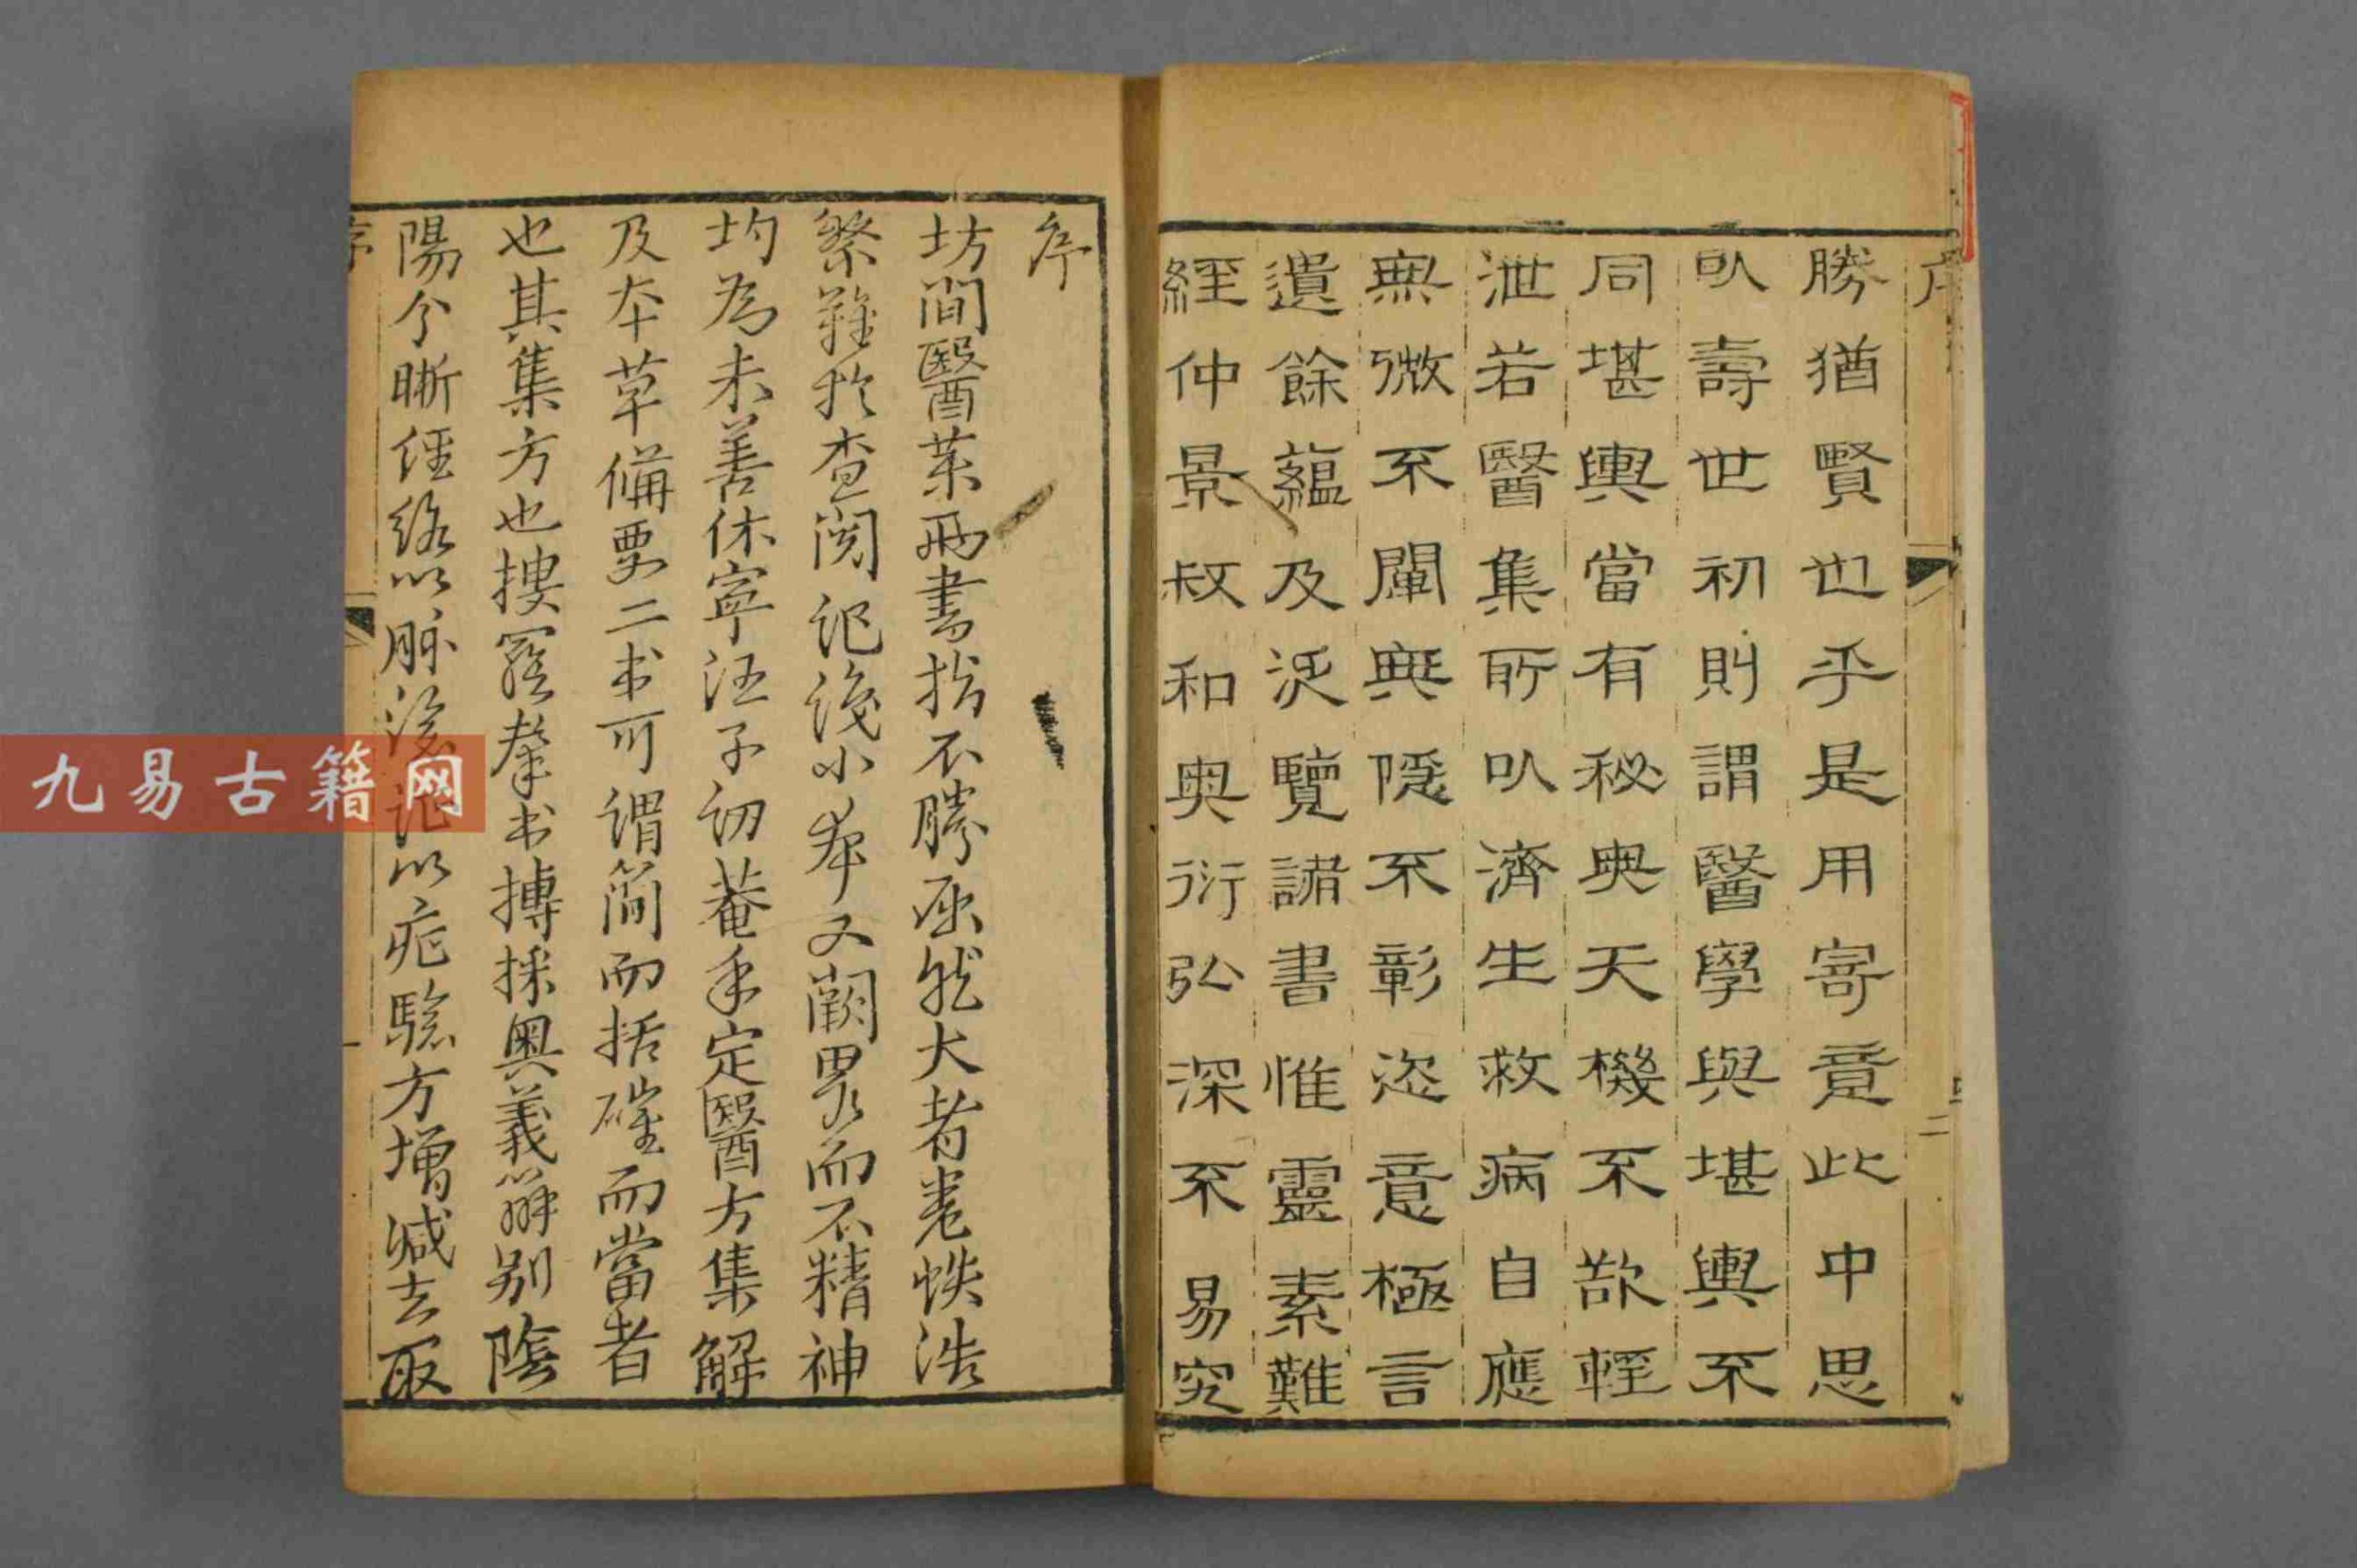 勝猶賢也乎是用寄意此中思
㕥壽世初則謂醫學與堪輿不
同堪輿當有秘奥天機不敢輕
泄若醫集所㕥濟生救病自應
無微不闡無隱不彰恣意極言
遺餘蘊及泛覽諸書惟靈素難
經仲景叔和奥衍弘深不易究
序
坊間醫業書指不勝屈然大者卷帙浩
繁難於查閱記後小本又闕畧而不精神
均為未善休寧汪子訒菴手定醫方集解
及本草備要二书可谓简而括確而當者
也其集方也摟羅羣书搏採奥義辨别陰
陽分晰经络以脉以症驗方增減去取
序
二
九易古籍网